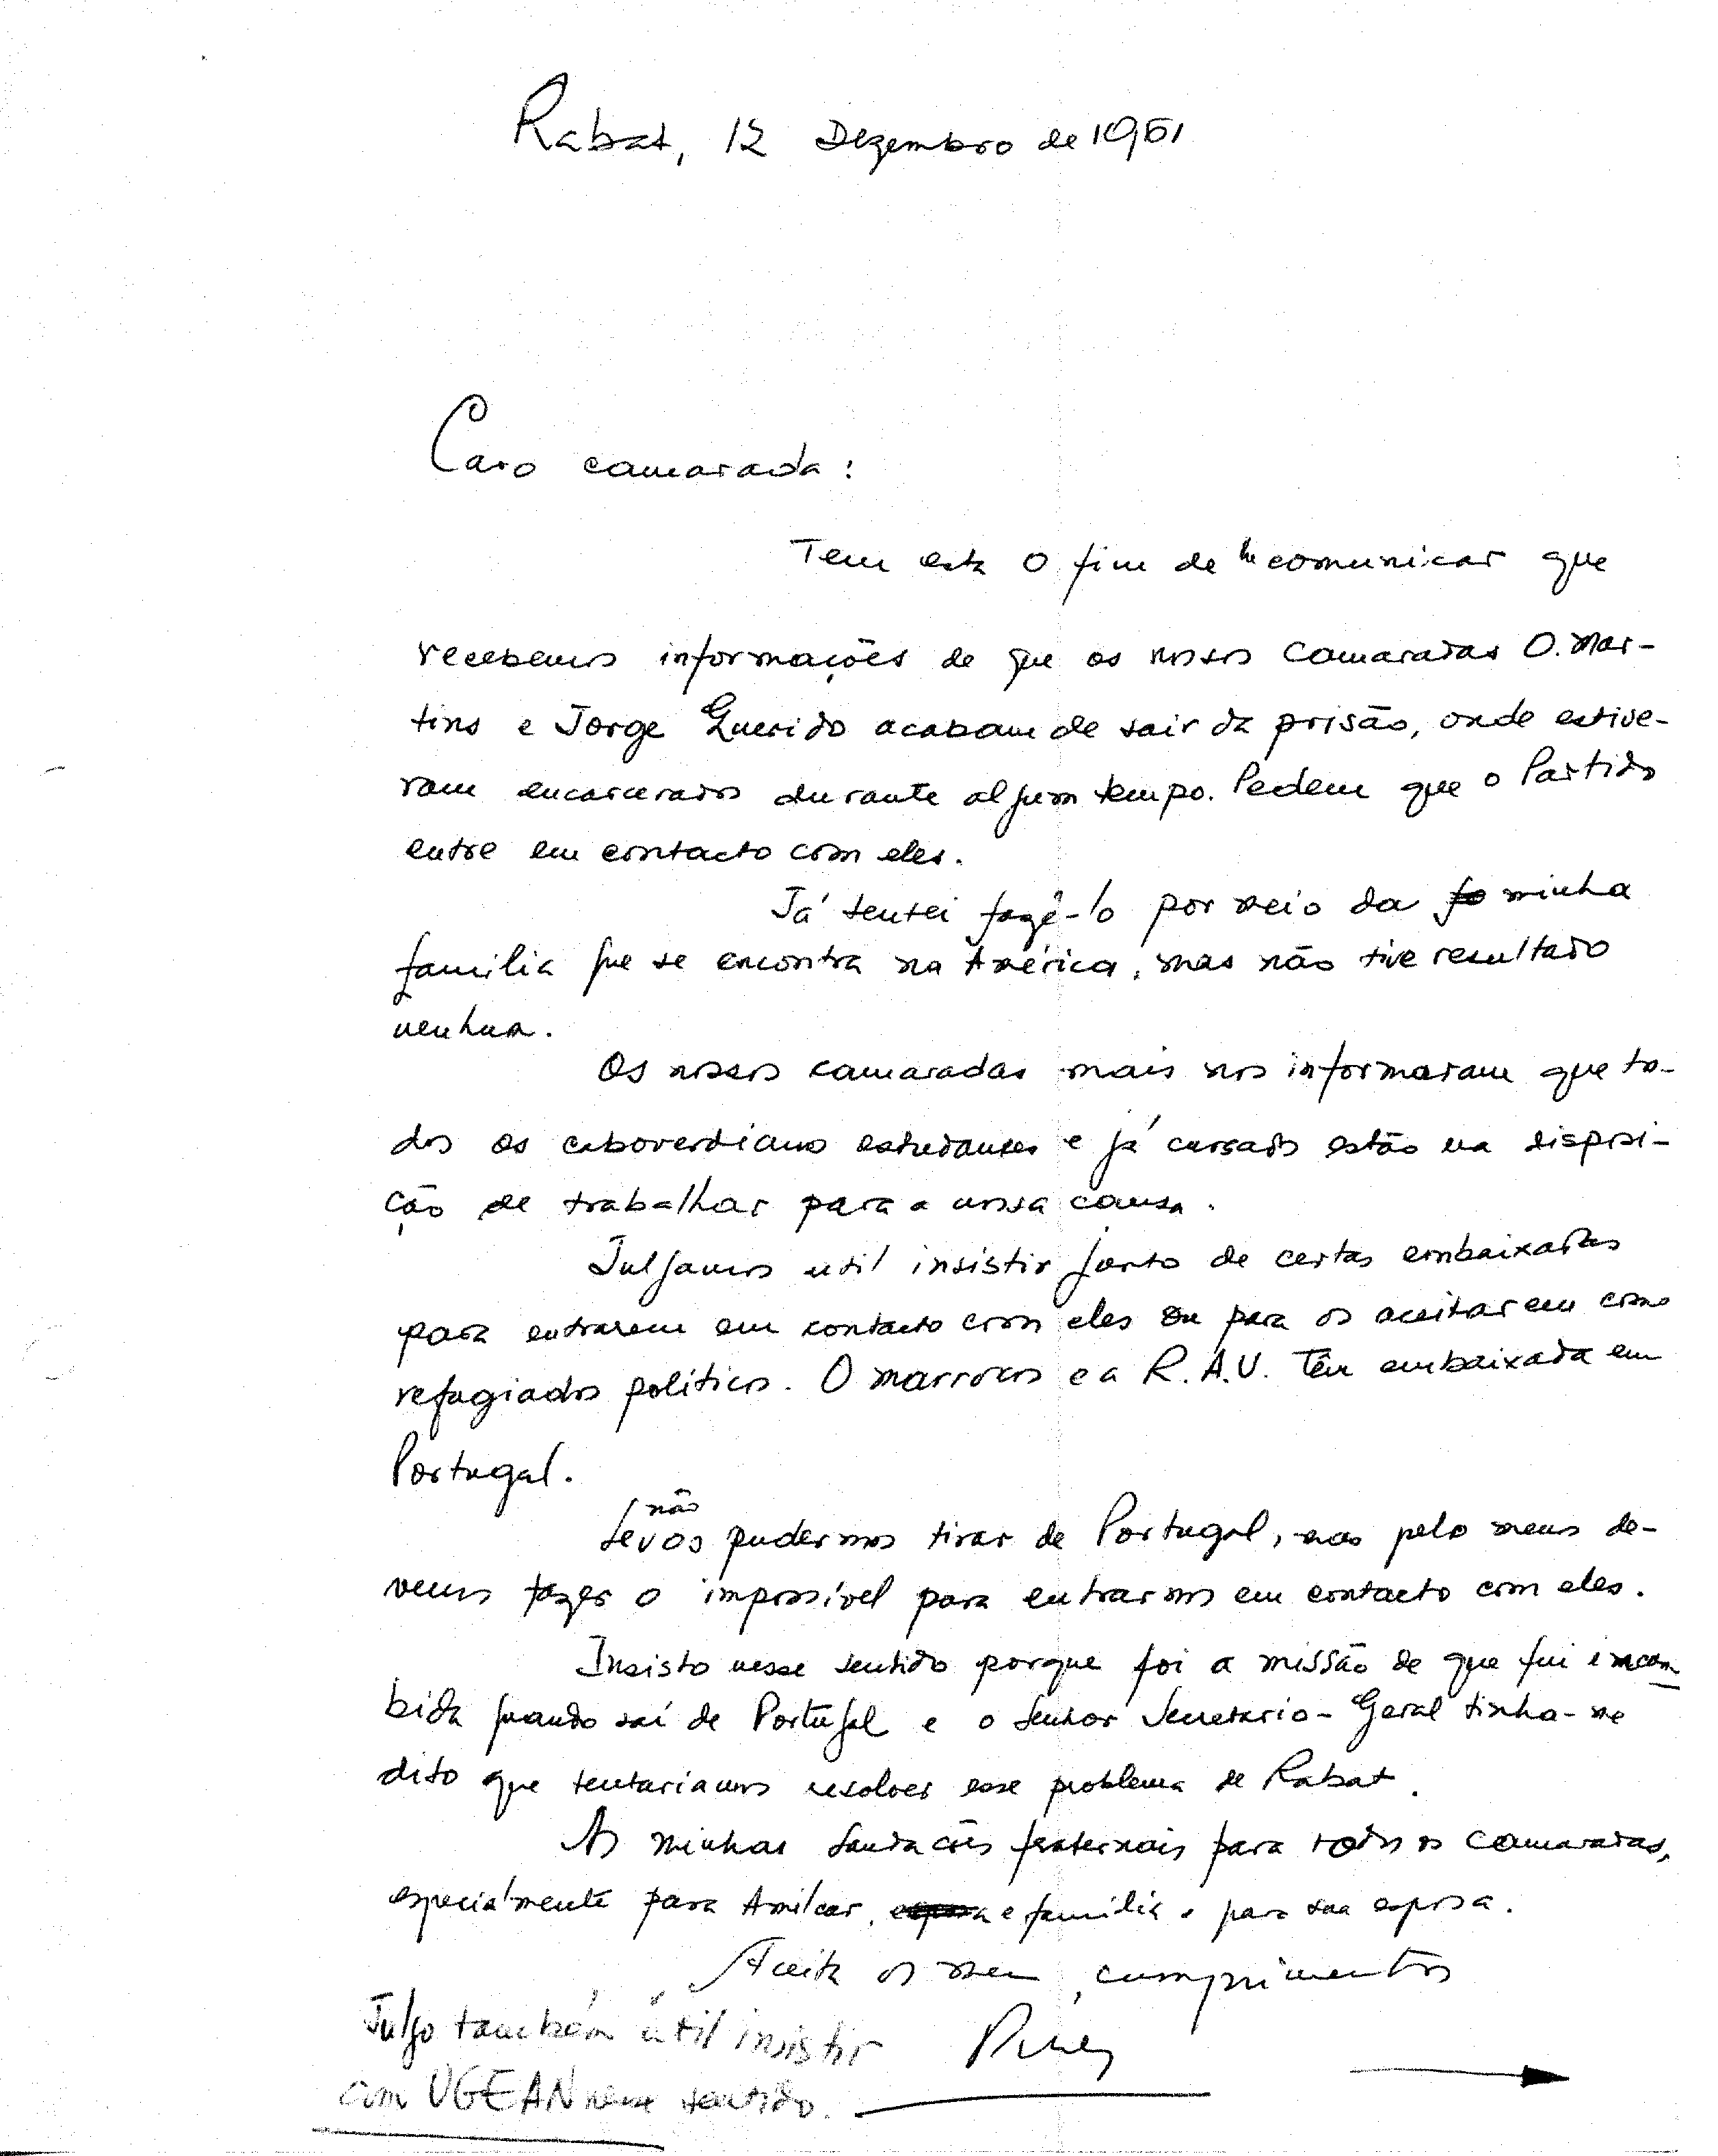 Rabat, 12 Dezembro de 1961
Caro camarada:
Tem esta o fim de lhe comunicar que
recebemos informações de que os nossos camaradas O. Mar-
tins e Jorge Querido acabam de sair da prisão, onde estive-
ram encarcerados durante algum tempo. Pedem que o Partido
entre em contacto com eles.
Já tentei fazê-lo por meio da fa minha
familia que se encontra na América, mas não tive resultado
nenhum.
Os nossos camaradas mais nos informaram que to-
dos os caboverdianos estudantes e já cursados estão na disposi-
ção de trabalhar para a nossa causa.
Julgamos util insistir junto de certas embaixadas
para entrarem em contacto com eles ou para os aceitarem como
refugiados politicos. O Marrocos e a R.A.U. Têm embaixada em
Portugal.
Se não os pudermos tirar de Portugal, mas pelo menos de-
vemos fazer o impossível para entrarmos em contacto com eles.
Insisto nesse sentido porque foi a missão de que fui incum
bida quando saí de Portugal e o Senhor Secretario-Geral tinha-me
dito que tentariamos resolver esse problema de Rabat.
As minhas saudações fraternais para todos os camaradas,
especialmente para Amilcar, esposa e familia e para sua esposa.
Aceita os meus cumprimentos
Julgo também útil insistir
com UGEAN nesse sentido.